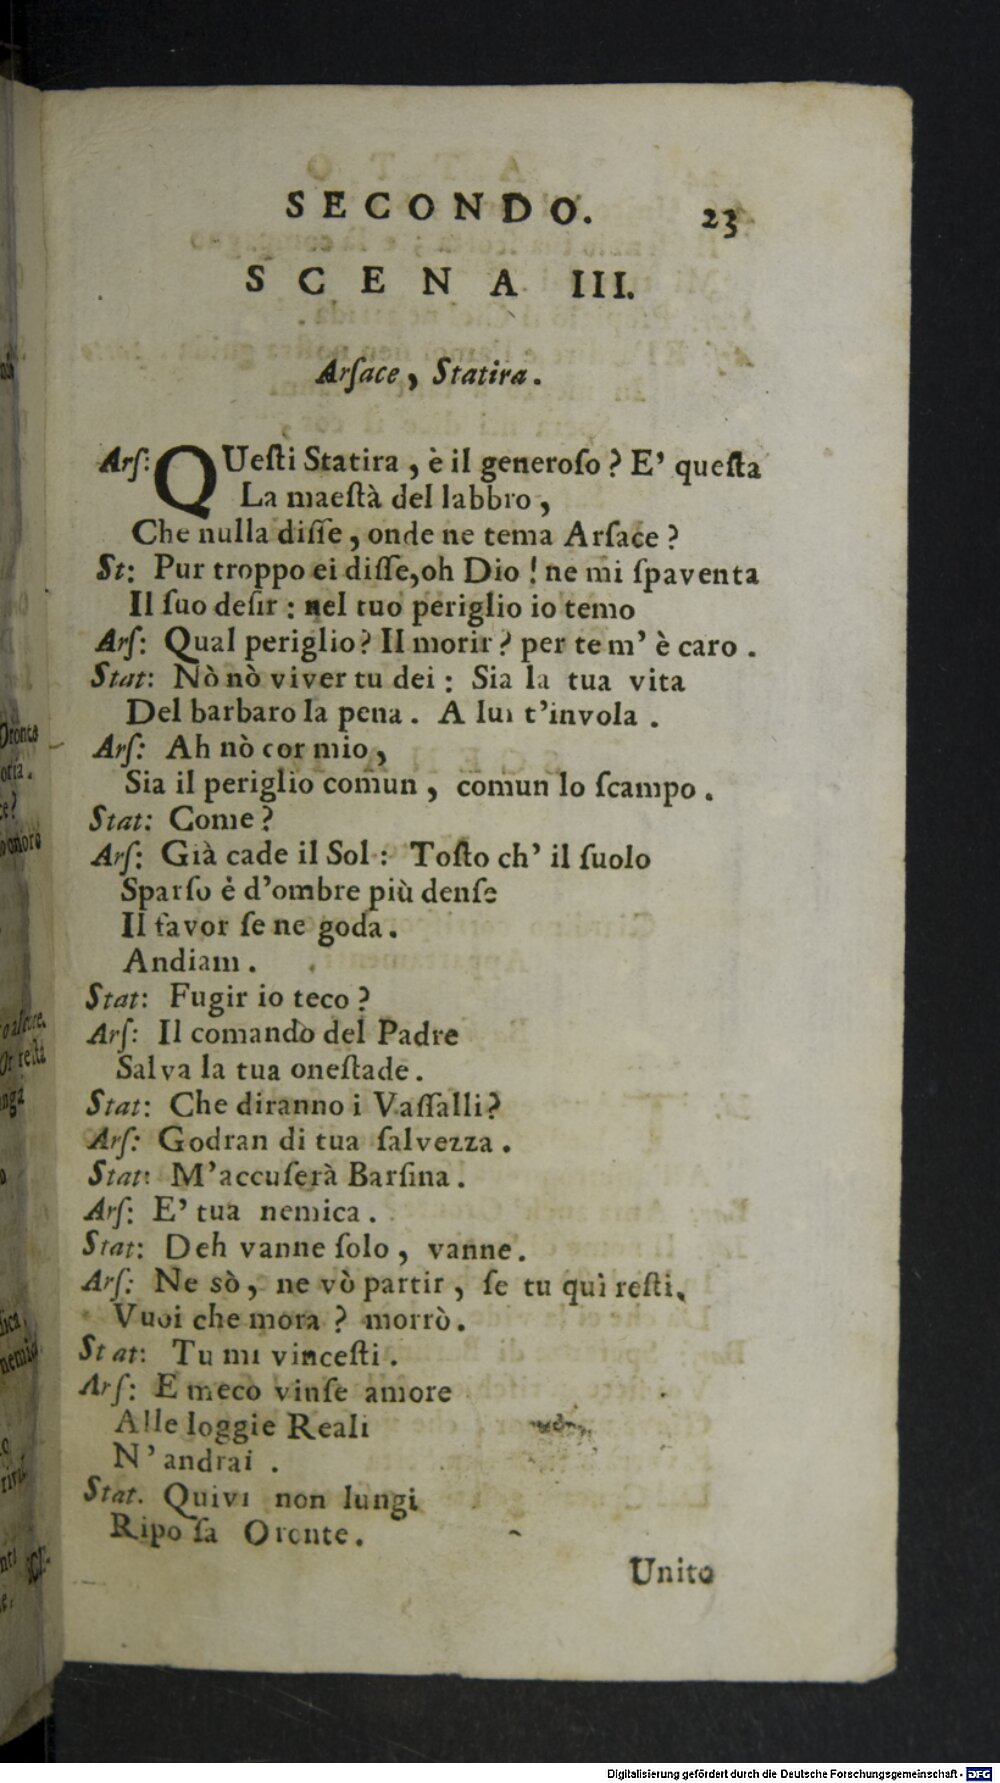 SECONDO. 23
SCENA III.
Arſace, Statira.
Arſ: QUeſti Statira, è il generoſo? E' queſta
La maeſtà del labbro,
Che nulla diſſe, onde ne tema Arſace?
St: Pur troppo ei diſſe,oh Dio! ne mi ſpaventa
Il ſuo deſir: nel tuo periglio io temo
Arſ: Qual periglio? Il morir? per te m' è caro.
Stat: Nò nò viver tu dei: Sia la tua vita
Del barbaro la pena. A lui t'invola.
Arſ: Ah nò cor mio,
Sia il periglio comun, comun lo ſcampo.
Stat: Come?
Arſ: Già cade il Sol: Toſto ch' il ſuolo
Sparſo è d'ombre più denſe
Il favor ſe ne goda.
Andiam.
Stat: Fugir io teco?
Arſ: Il comando del Padre
Salva la tua oneſtade.
Stat: Che diranno i Vaſſalli?
Arſ: Godran di tua ſalvezza.
Stat: M'accuſerà Barſina.
Arſ: E' tua nemica.
Stat: Deh vanne ſolo, vanne.
Arſ: Ne sò, ne vò partir, ſe tu quì reſti,
Vuoi che mora? morrò.
Stat: Tu mi vinceſti.
Arſ: E meco vinſe amore
Alle loggie Reali
N'andrai.
Stat. Quivi non lungi
Ripoſa Oronte.
Unito
Digitalisierung gefördert durch die Deutsche Forschungsgemeinschaft - DFG